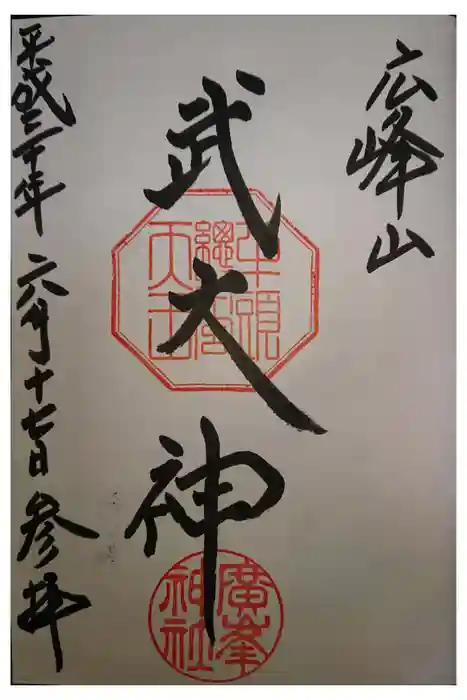 広峰山
武大神
平成三十年六月十七日参拝
牛頭
總
天王
廣峯
神社